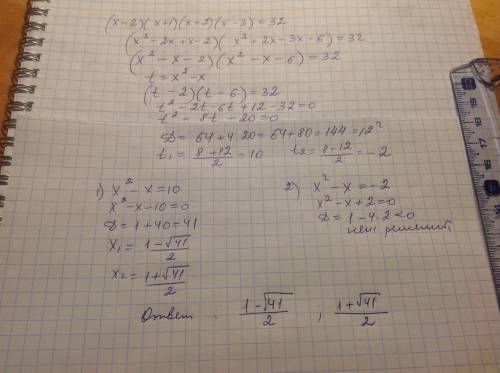 (x-2)(x+1)(x+2)(x-3)=32
(x²-2x+x-2)(x²+2x-3x-6)=32
(x²-x-2)(x²-x-6)=32
t=x²-x
(t-2)(t-6)=32
t²-2t-6t+12-32=0
t²-8t-20=0
D=64+4·20=64+80=144=12²
t₁=(8+12)/2=10 t₂=(8-12)/2=-2
1) x²-x=10
x²-x-10=0
D=1+40=41
x₁=(1-√41)/2
x₂=(1+√41)/2
2) x²-x=-2
x²-x+2=0
D=1-4·2<0
нет решений
Ответ: (1-√41)/2 ; (1+√41)/2